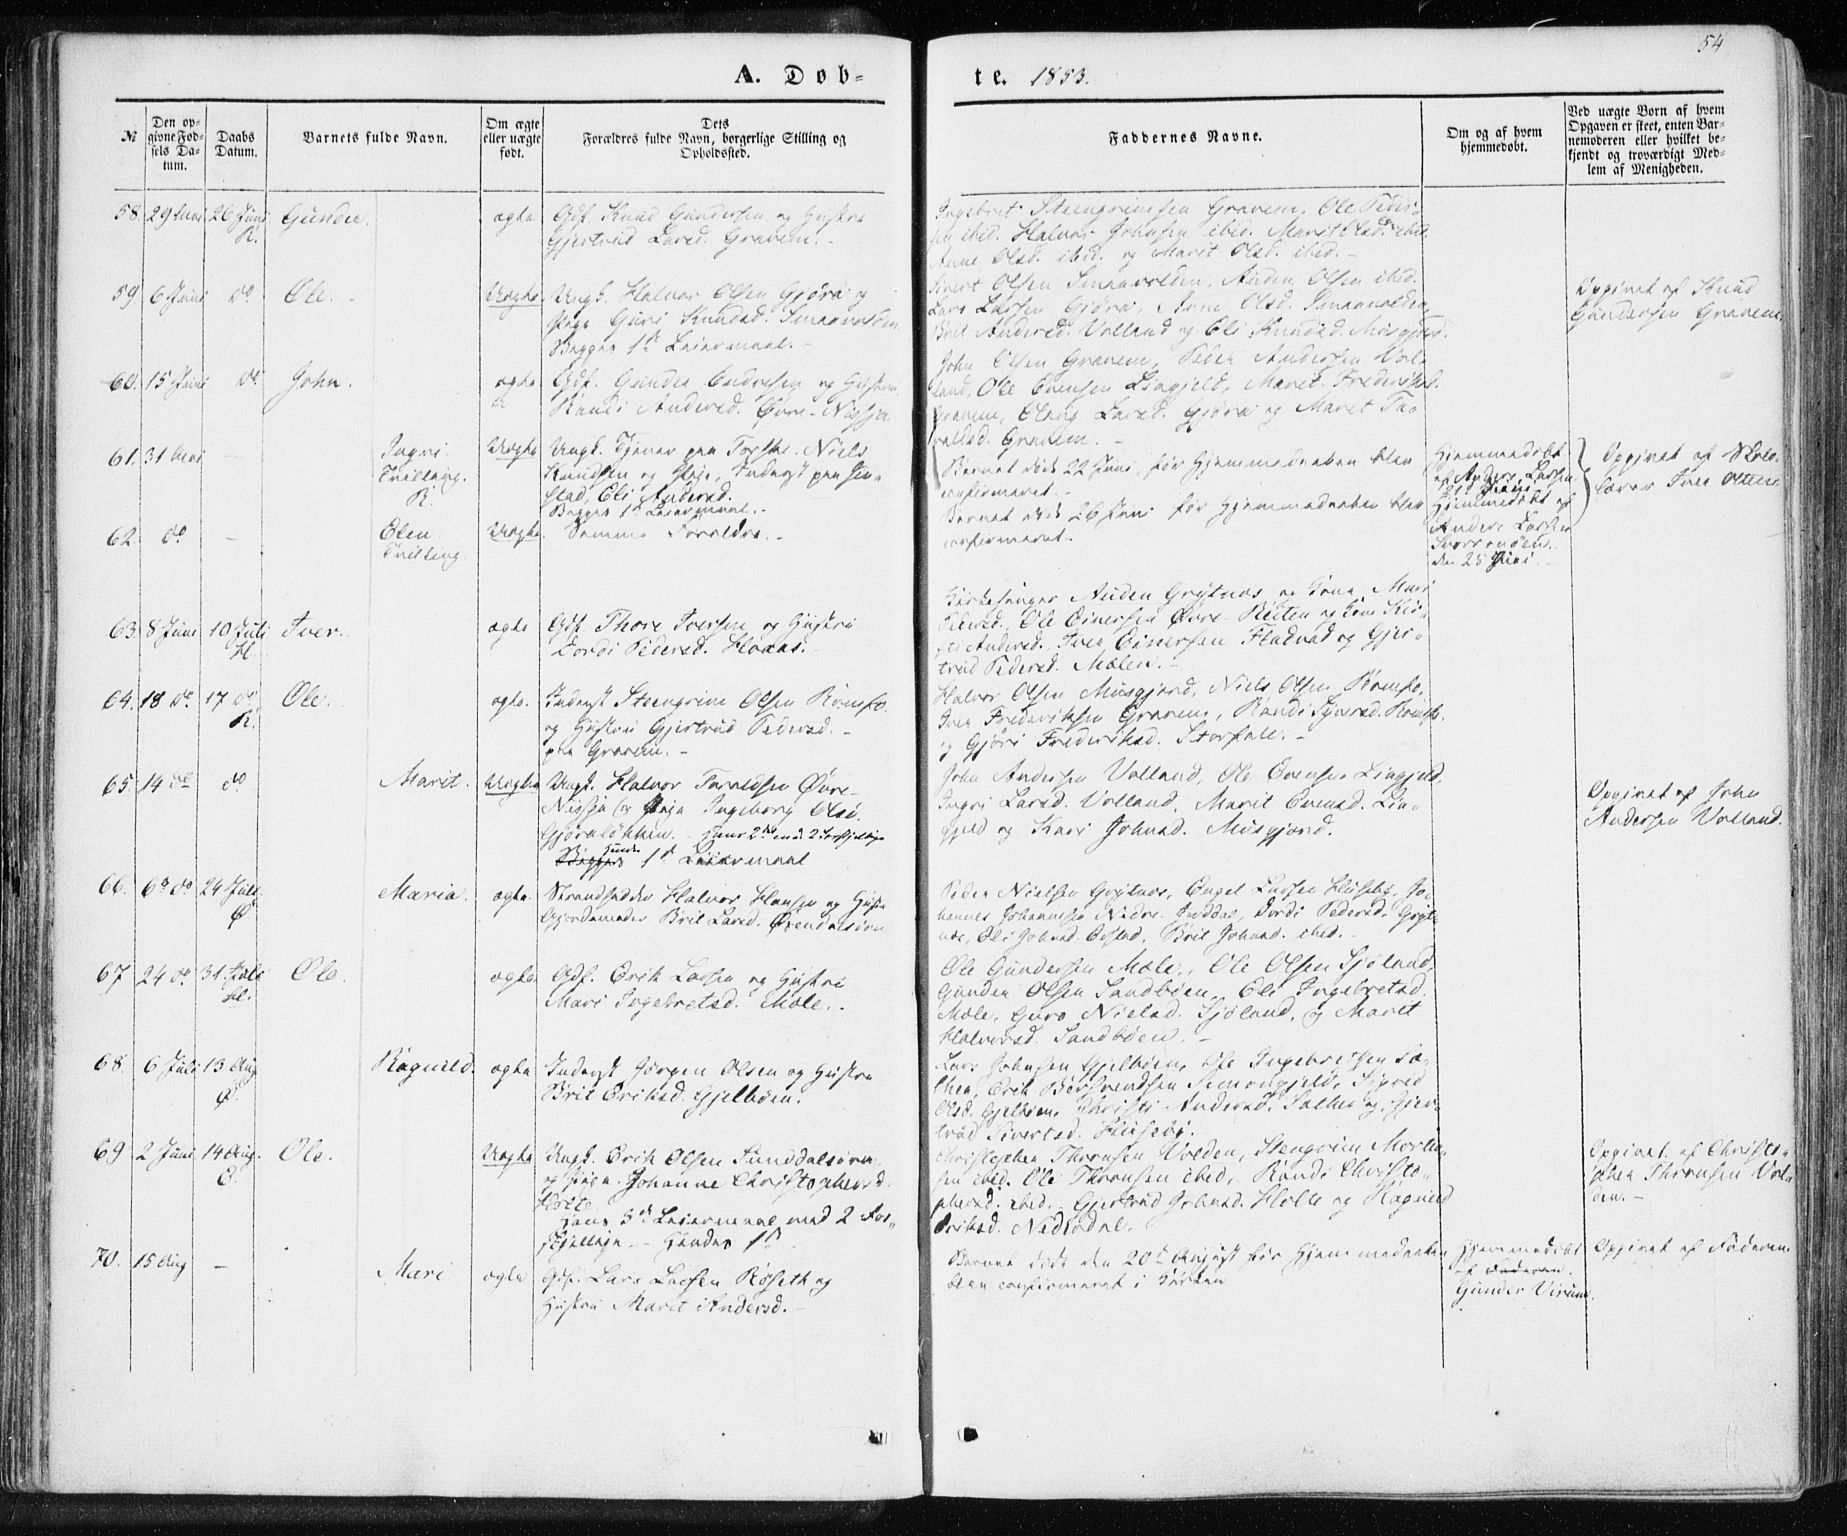 54
A. Døb-
te. 1853.
№
Den op-
givne Fød-
sels Da-
tum.
Daabs
Datum.
Barnets fulde Navn.
Om ægte
eller uægte
født.
Dets
Forældres fulde Navn, borgerlige Stilling og
Opholdssted.
Faddernes Navne.
Om og af hvem
hjemmedøbt.
Ved uægte Børn af hvem
Opgaven er skeet, enten Bar-
nemoderen eller hvilket be-
kjendt og troværdigt Med-
lem af Menigheden.
58. 29 Mai 26 Juni Gunder. ægte Gdf. Knud Gundersen og Hustru
R. Gjertrud Larsd. Gravem. -
Ingebret Steengrimsen Gravem, Ole Peder-
sen ibid. Halvor Johnsen ibid. Marit Olsd. ibid.
Anne Olsd. ibid. og Marit Olsd. ibid. -
59. 6 Juni do. Ole. - Uægte Ungk. Halvor Olsen Gjøra og
Pige Guri Knudsd. Smaavolden.
Begges 1ste Leiermaal. -
Sivert Olsen Smaavolden, Auden Olsen ibid.
Lars Larsen Gjøra, Anne Olsd. Smaavolden,
Brit Andersd. Volland og Eli Knudsd. Musgjerd.
Opgivet af Knud
Gundersen Gravem.
60. 15 Juni do. John. ægte Gdf. Gunder Endresen og Hustru
Randi Andersd. Øvre-Nisja
John Olsen Gravem, Peder Andersen Vol-
land, Ole Evensen Lingjeld, Marit Frederiksd.
Gravem, Larsd. Gjøra og Marit Ta-
raldsd. Gravem. -
61. 31 Mai - Ingri Uægte Ungk. Tjener paa Niels
Tvilling. Knudsen og Pige, Inderst paa
R. Eli Andersd.
Begges 1ste Leiermaal. -
Barnet døde 22 Juni, før Hjemmedaaben blev
confirmeret. -
Hjemmedøbt
af Anders Larsen
Opgivet af Skole-
lærer Iver
62. do - Elen Uægte. Samme Forældre. -
Tvilling.
Barnet døde 26 Juni før Hjemmedaaben blev
confirmeret.
Hjemmedøbt af
Anders Larsen
den 25 Juni -
63. 8 Juni 10 Juli Iver. ægte Gdf. Thore Iversen og Hustru
H. Dordi Pedersd. Hoaas. -
Kirkesanger Auden Grytnæs og Kone Mari
Pedersd., Ole Einersen Øvre-Reiten og Kone Kir-
sti Andersd., Iver Einersen Fladvad og Gjer-
trud Pedersd. Mælen. -
64. 18 do 17 do Ole. ægte. Inderst Steengrim Olsen Romfo.
R. og Hustru Gjertrud Pedersd. -
paa Gravem. -
Halvor Olsen Musgjerd, Niels Olsen Romfo,
Iver Frederiksen Gravem, Randi Sivertsd. Romfo.
og Gjøri Frederiksd. Storfale. -
65. 14 do do Marit. Uægte Ungk. Halvor Taraldsen Øvre-
Nisja og Pige Ingeborg Olsd.
Gjøraløkken. - Hans 2det med 2 Forskjellige
Begges Hendes 1ste Leiermaal
John Andersen Volland, Ole Evensen Lingjeld,
Ingri Larsd. Volland, Marit Evensd. Lin-
gjeld og Kari Johnsd. Musgjerd.
Opgivet af John
Andersen Volland.
66. 6te do 24 Juli Maria. ægte. Strandsidder Halvor Hansen og Hustru
Ø Gjordemoder Brit Larsd. Øxendalsøren
Peder Nielsen Grytnæs, Engel Larsen Huseby, Jo-
hannes Johannesen Nedre-Jordal, Dordi Pedersd. Gryt-
næs, Eli Johnsd. Brit Johnsd. ibid. -
67 24 do 31 Juli Ole. ægte. Gdf. Erik Larsen og Hustru
H. Mari Ingebretsd. Mæle. -
Ole Gundersen Mæle, Ole Olsen Sjøland,
Gunder Olsen Sandbøen, Eli Ingebretsd.
Mæle, Guro Nielsd. Sjøland, og Marit
Halvorsd. Sandbøen. -
68 6 Juli 13 Aug Ragnild. ægte Inderst Jørgen Olsen og Hustru
Ø. Brit Eriksd. Gjelbøen.
Lars Johnsen Gjelbøen, Ole Ingebretsen Sæ-
ther, Erik Bersvendsen Simongjeld, Sigrid
Olsd. Gjelbøen, Christi Andersd. Sæther og Gjer-
trud Sivertsd. Huseby.
69 2 Juni 14 Aug. Ole. Uægte Ungk. Erik Olsen Sunddalsøren
og Pige Johanne Christophersd.
Holte.
Hans 3de Leiermaal med 2 For-
skjellige - Hendes 1ste
Christopher Thoresen Volden, Stengrim Morten-
sen ibid. Ole Thoresen ibid, Randi Christo-
phersd. ibid. Gjertrud Johnsd. Holte og Ragnild
Eriksd. Nedredal.
Opgivet af Christo-
pher Thoresen Vol-
den. -
70. 15 Aug - Mari ægte Gdf. Lars Larsen Røseth og
Hustru Marit Andersd. -
Barnet døde den 20de August før Hjemmedaaben
blev confirmeret i Kirken
Hjemmedøbt
af Faderen.
Gunder Virum.
Opgivet af Faderen.